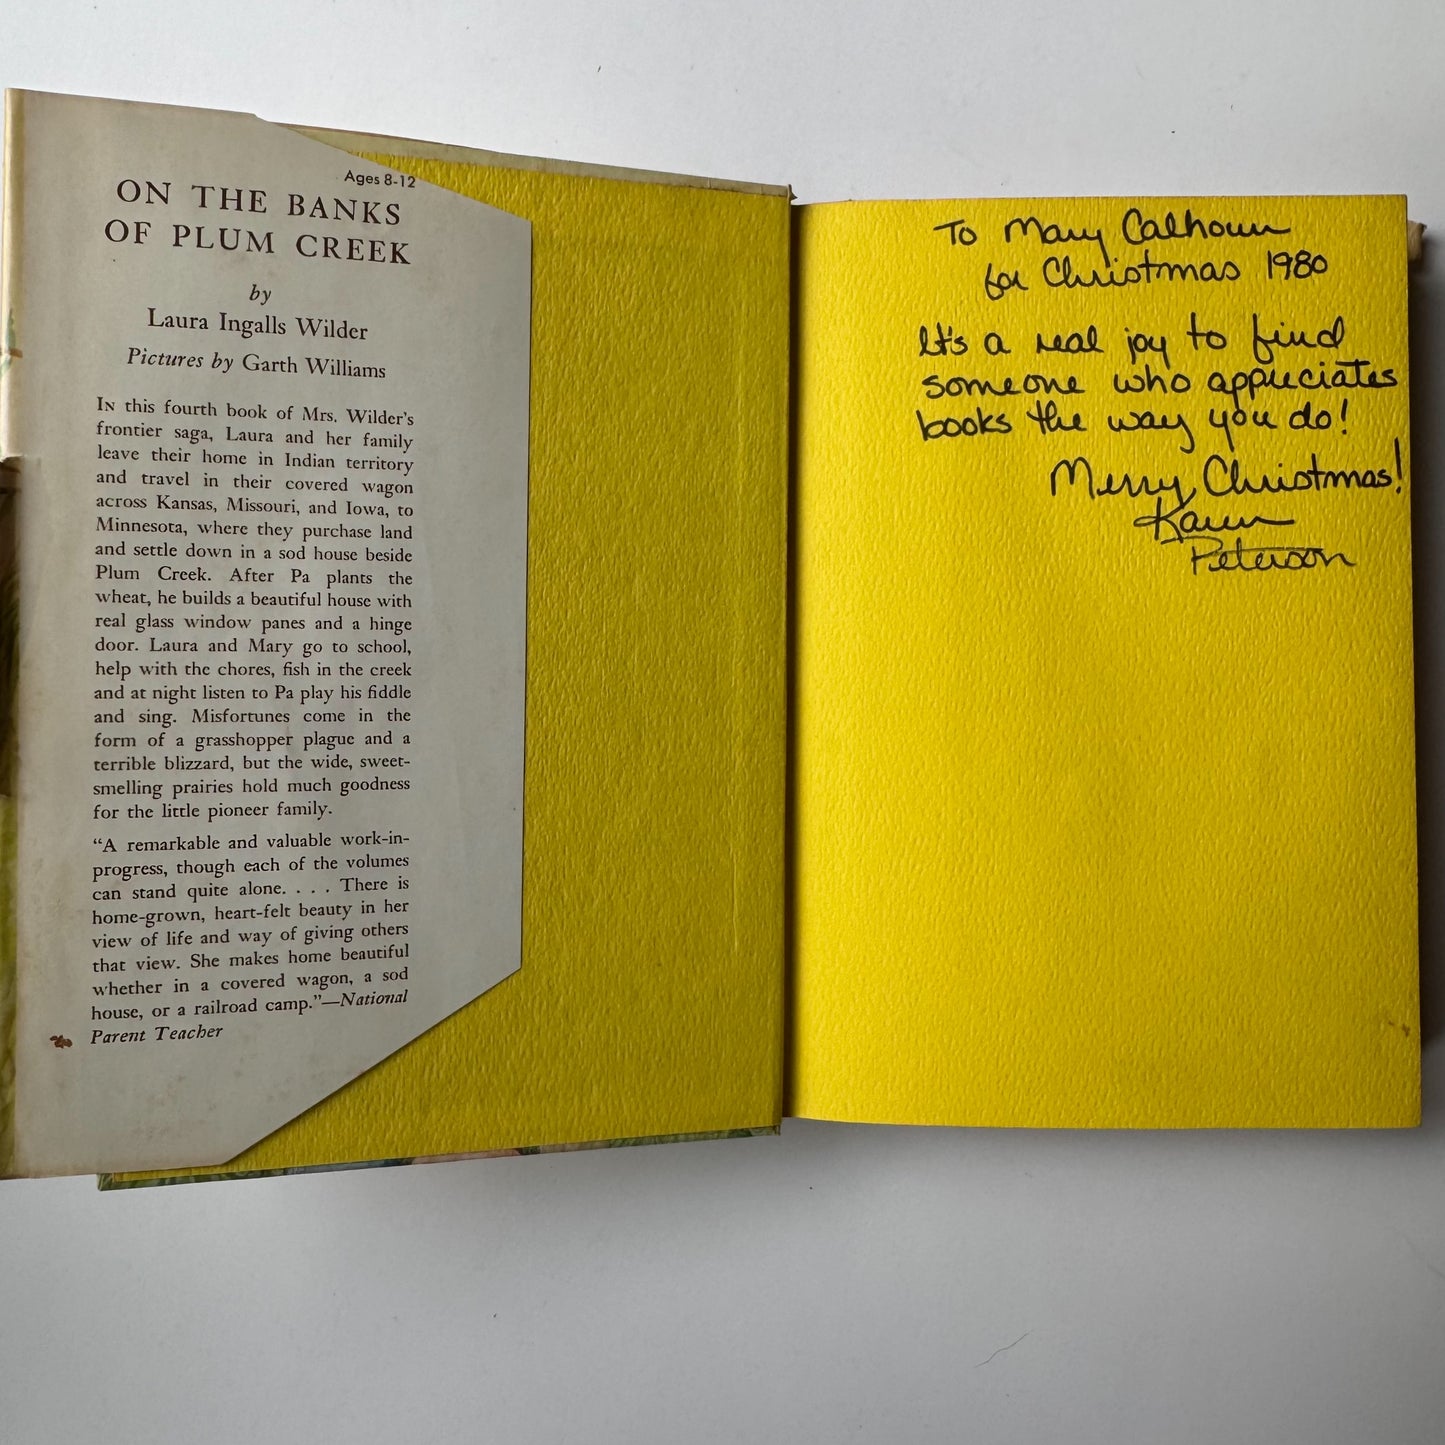 Ages 8-12
ON THE BANKS
OF PLUM CREEK
by
Laura Ingalls Wilder
Pictures by Garth Williams
IN this fourth book of Mrs. Wilder's
frontier saga, Laura and her family
leave their home in Indian territory
and travel in their covered wagon
across Kansas, Missouri, and Iowa, to
Minnesota, where they purchase land
and settle down in a sod house beside
Plum Creek. After Pa plants the
wheat, he builds a beautiful house with
real glass window panes and a hinge
door. Laura and Mary go to school,
help with the chores, fish in the creek
and at night listen to Pa play his fiddle
and sing. Misfortunes come in the
form of a grasshopper plague and a
terrible blizzard, but the wide, sweet-
smelling prairies hold much goodness
for the little pioneer family.
“A remarkable and valuable work-in-
progress, though each of the volumes
can stand quite alone. . . . There is
home-grown, heart-felt beauty in her
view of life and way of giving others
that view. She makes home beautiful
whether in a covered wagon, a sod
house, or a railroad camp.”—National
Parent Teacher
To Mary Calhoun
for Christmas 1980
It's a real joy to find
someone who appreciates
books the way you do!
Merry Christmas!
Karen
Peterson